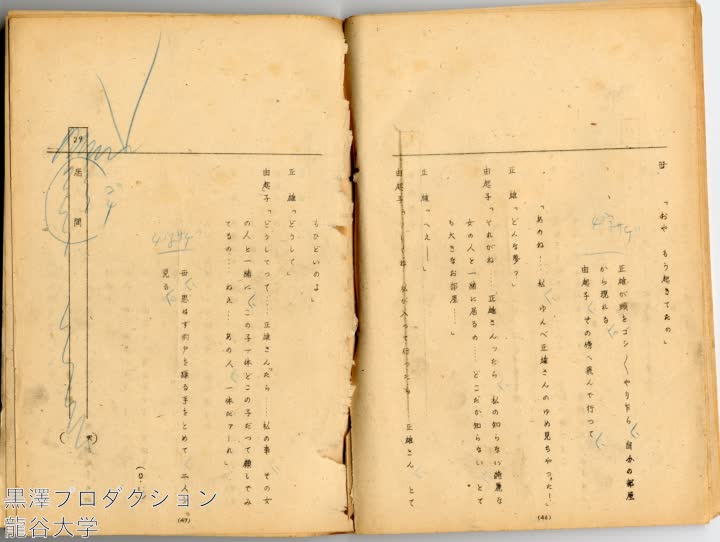 母
「おや　もう起きてたの」
正雄が頭をゴシ〳〵やり乍ら　自分の部屋
から現れる
由起子　その傍へ飛んで行つて
「あのね…　私　ゆんべ正雄さんのゆめ見ちやつたー」
正　雄「どんな夢？」
由起子「それがね…　正雄さんつたら　私の知らない綺麗な
女の人と一緒に居るの…　どこだか知らない　とて
も大きなお部屋…」
正　雄「へえ――」
由起子　私が入つて行つたら　正雄さん　とて
(46)
もひどいのよ」
正　雄「どうして」
由起子「どうしてつて……正雄さんたら……私の事　その女
の人と一緒に　この子一体どこの子だつて顔してみ
てるの……ねえ…　あの人　一体だァーれ」
母　思はず
見る
(47)
29
居　間
黒澤プロダクション
龍谷大学